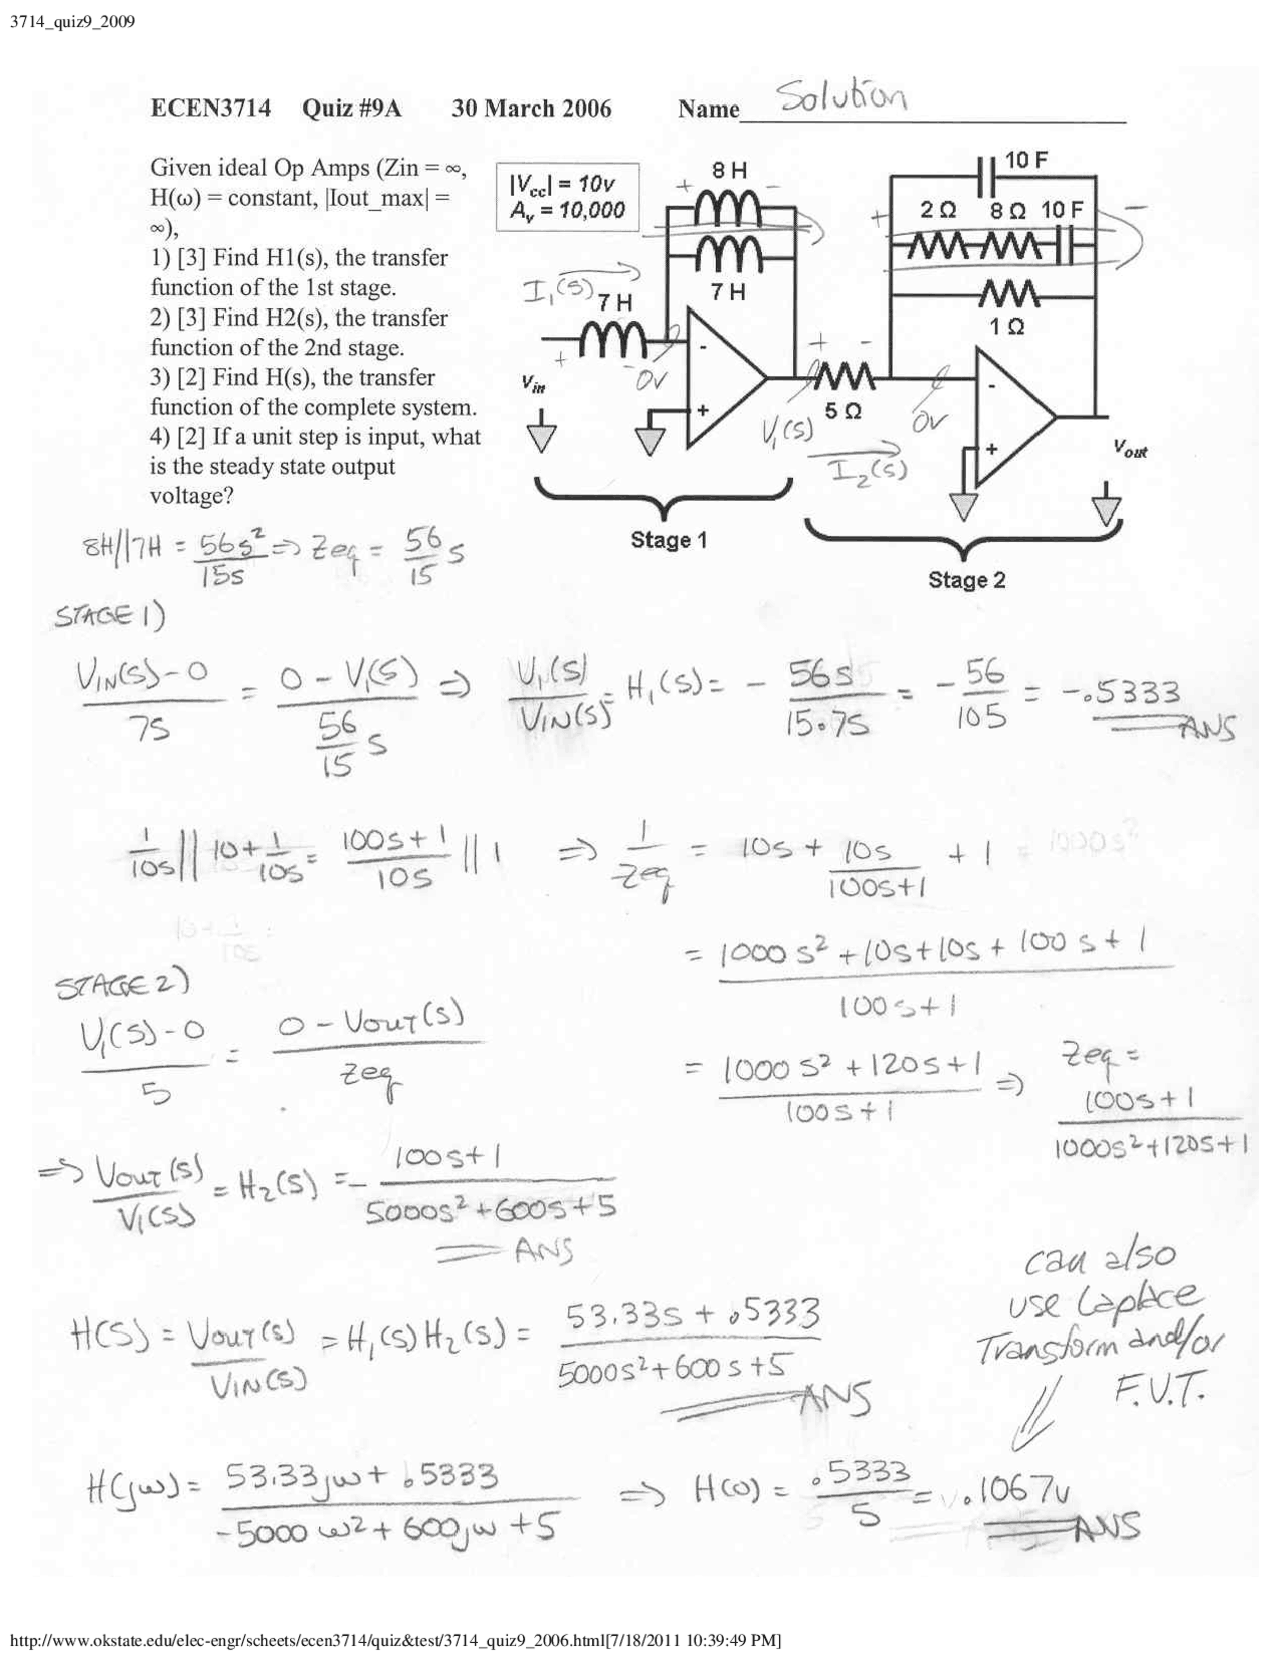 3714_quiz9_2009
ECEN3714 Quiz #9A 30 March 2006 Name Solution
Given ideal Op Amps (Zin = ∞,
H(ω) = constant, |Iout_max| =
∞),
1) [3] Find H1(s), the transfer
function of the 1st stage.
2) [3] Find H2(s), the transfer
function of the 2nd stage.
3) [2] Find H(s), the transfer
function of the complete system.
4) [2] If a unit step is input, what
is the steady state output
voltage?
|Vcc| = 10v
Av = 10,000
8 H
+ -
7 H
I₁(s)
7 H
+ - 0v
Vin
-
+
V₁(s)
+ -
5 Ω
I₂(s)
0v
10 F
+ -
2 Ω 8 Ω 10 F
1 Ω
-
+
Vout
Stage 1
Stage 2
8H//7H = 56s²/15s ⇒ Zeq = 56/15 s
STAGE 1)
(VIN(s)-0)/7s = (0 - V₁(s))/(56/15 s) ⇒ V₁(s)/VIN(s) = H₁(s) = - 56s/15·7s = - 56/105 = -.5333 ANS
1/10s || 10 + 1/10s = (100s+1)/10s || 1 ⇒ 1/Zeq = 10s + 10s/(100s+1) + 1
= (1000s² + 10s + 10s + 100s + 1)/(100s+1)
STAGE 2)
(V₁(s)-0)/5 = (0 - VOUT(s))/Zeq
= (1000s² + 120s + 1)/(100s+1) ⇒ Zeq = (100s+1)/(1000s²+120s+1)
⇒ VOUT(s)/V₁(s) = H₂(s) = - (100s+1)/(5000s²+600s+5)
ANS
can also
use Laplace
Transform and/or
F.V.T.
H(s) = VOUT(s)/VIN(s) = H₁(s)H₂(s) = (53.33s + .5333)/(5000s²+600s+5)
ANS
H(jω) = (53.33jω + .5333)/(-5000ω² + 600jω + 5) ⇒ H(0) = .5333/5 = .1067v
ANS
http://www.okstate.edu/elec-engr/scheets/ecen3714/quiz&test/3714_quiz9_2006.html[7/18/2011 10:39:49 PM]